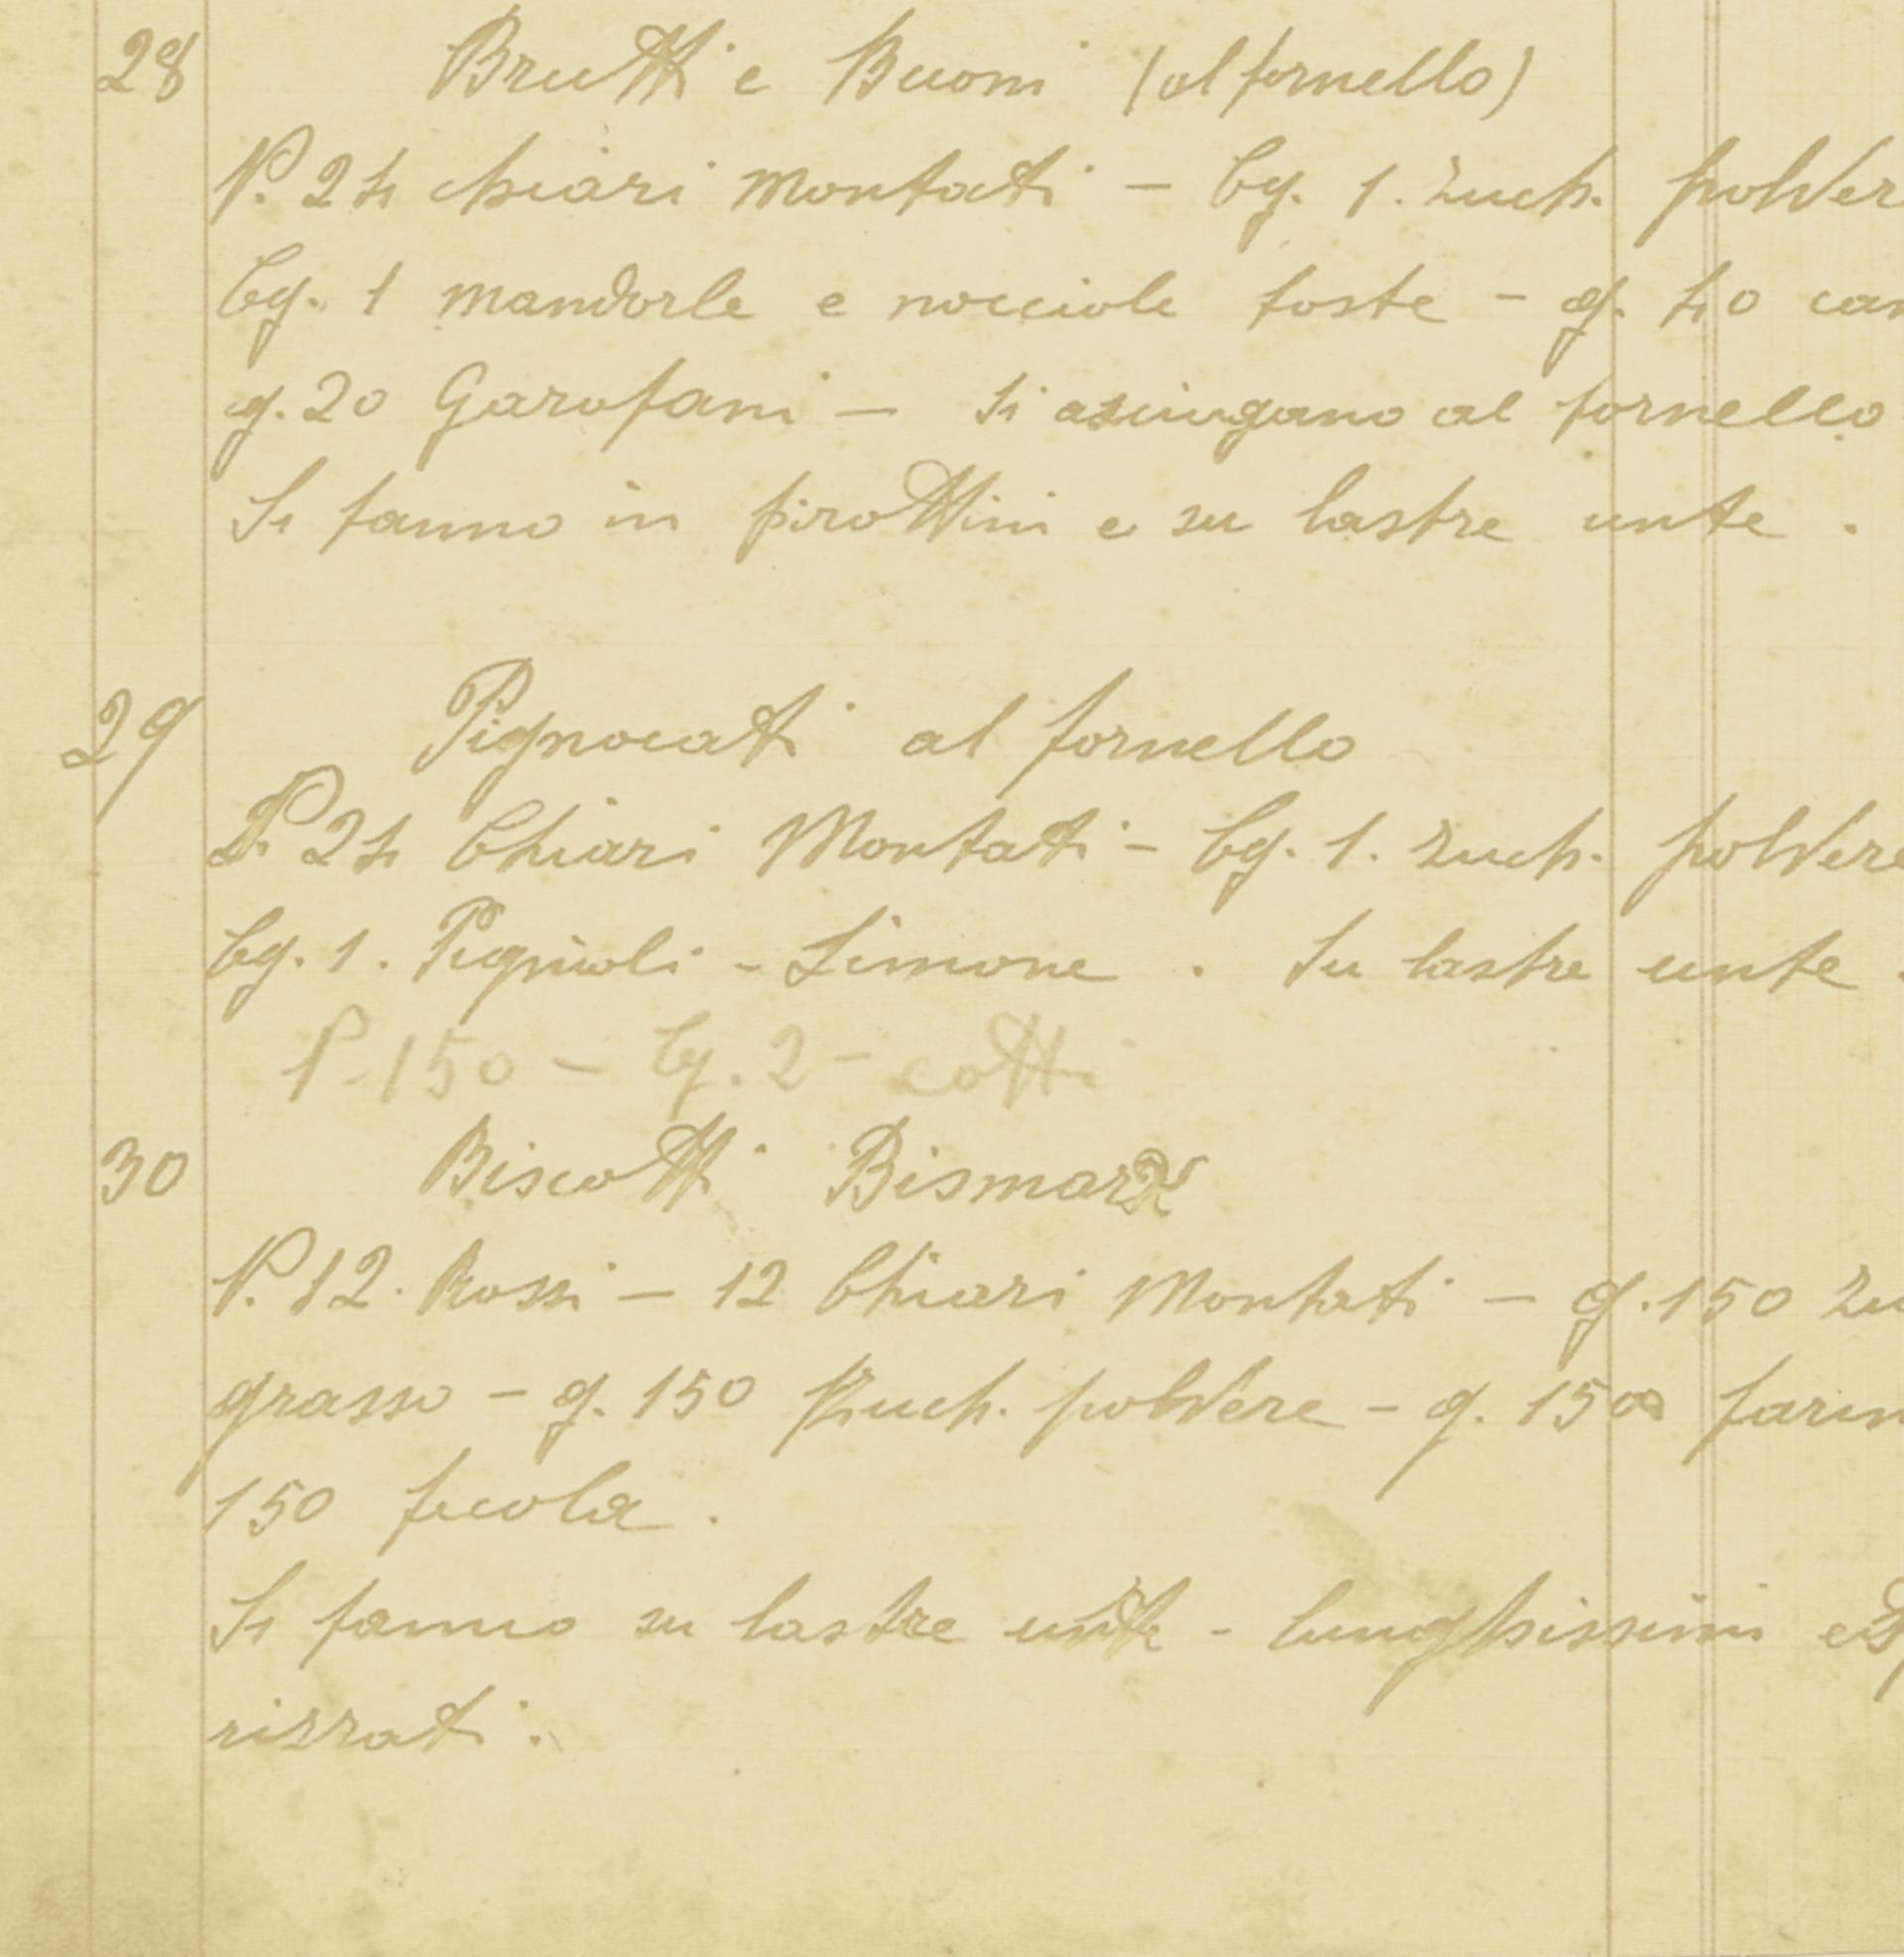 28 Brutti e Buoni (al fornello)
N. 24 chiari montati - Cg. 1. zuch. polver
Cg. 1 mandorle e nocciole toste - g. 40 can
g. 20 Garofani - Si asciugano al fornello
Si fanno in pirottini e su lastre unte .
29 Pignocati al fornello
N. 24 Chiari Montati - Cg. 1. zuch. polvere
Cg. 1. Pignuoli - Limone . Su lastre unte .
P. 150 - Cg. 2 - cotti
30 Biscotti Bismark
N. 12. Rossi - 12 Chiari Montati - g. 150 zu
grasso - g. 150 zuch. polvere - g. 150 farin
150 fecola .
Si fanno su lastre unte - lunghissimi e
rizzati .